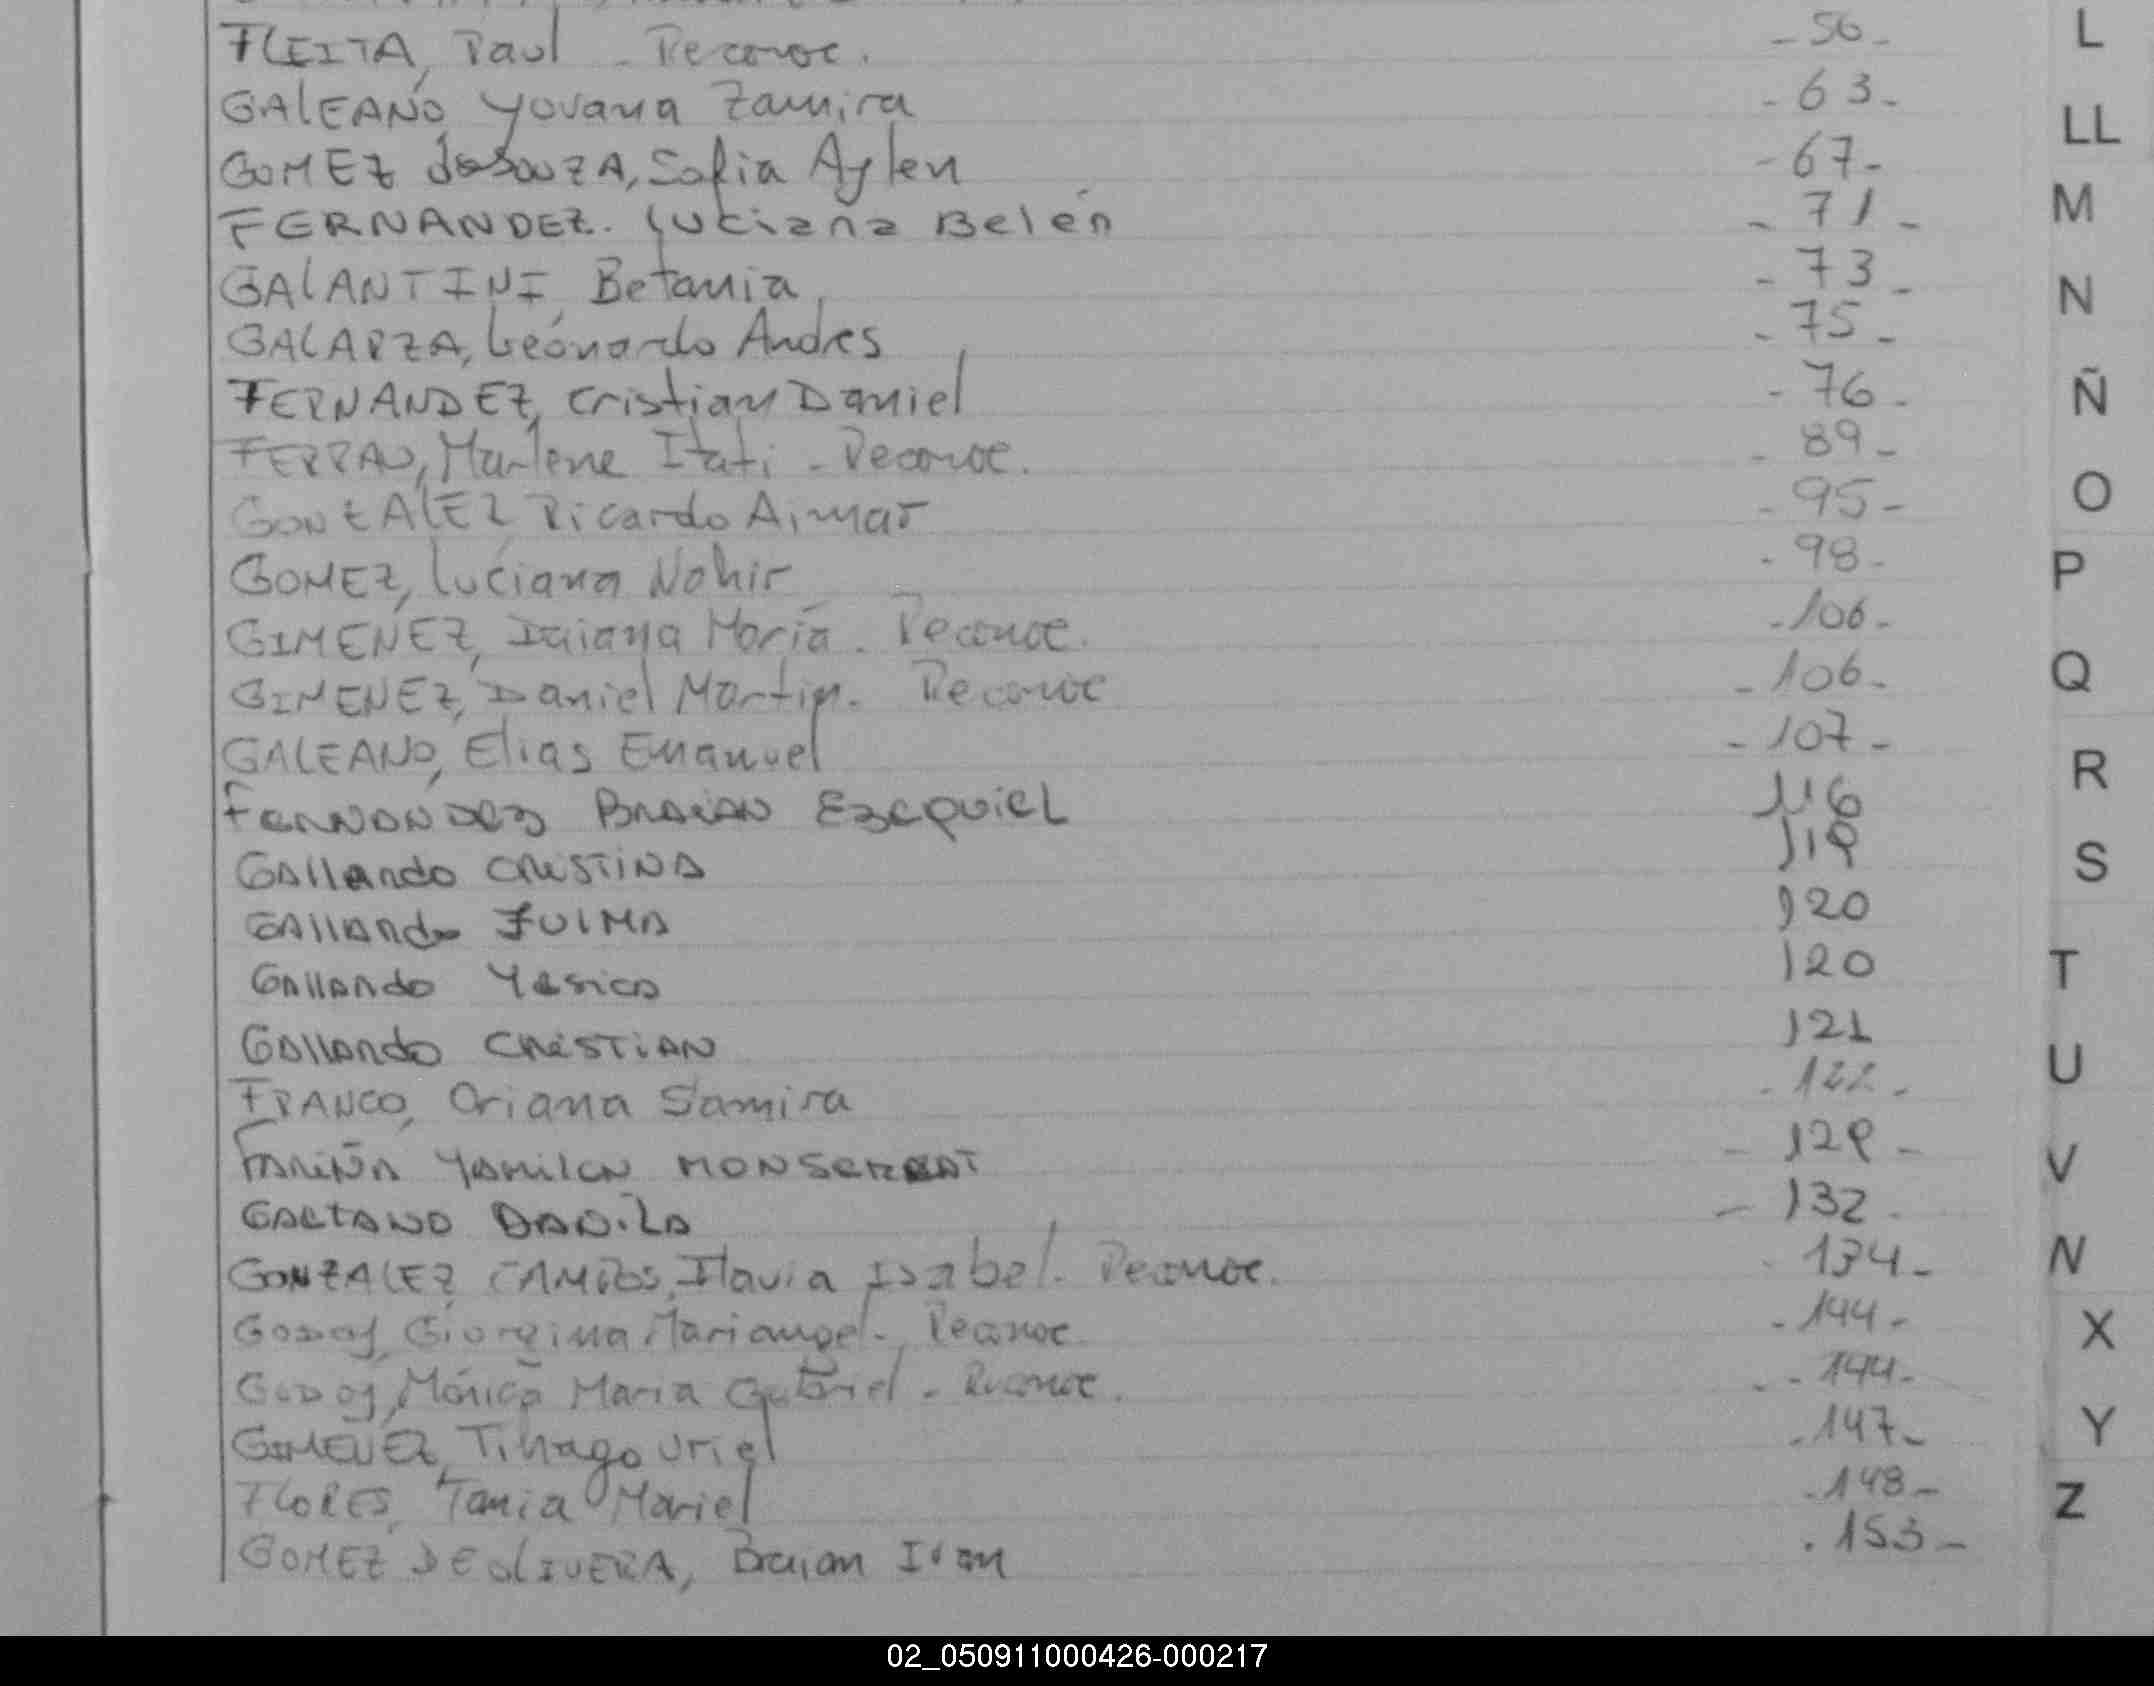 FLEITA, Raul - Reconoc. - 56 - L
GALEANO, Yovana Zamira - 63 - LL
GOMEZ deSouZA, Sofia Aylen - 67 - M
FERNANDEZ. Luciana Belén - 71 -
GALANTINI, Betania, - 73 - N
GALARZA, Leonardo Andres - 75 -
FERNANDEZ, Cristian Daniel - 76 - Ñ
FERRAU, Marlene Itati - Reconoc. - 89 -
GONZALEZ Ricardo Aimar - 95 - O
GOMEZ, Luciana Nahir - 98 - P
GIMENEZ, Daiana María - Reconoc. - 106 -
GIMENEZ, Daniel Martin - Reconoc - 106 - Q
GALEANO, Elias Emanuel - 107 -
FERNANDEZ BRAIAN EZEQUIEL 116 R
GAllando CRISTINA 119 S
GAllando ZULMA 120
GAllando Yesica 120 T
GAllando CRISTIAN 121
FRANCO, Oriana Samira - 122 - U
FARIÑA YAMILEN MONSERRAT - 129 - V
GAETANO DANILA - 132 -
GONZALEZ CAMPOS, Flavia Isabel - Reconoc. - 134 - N
GODOY, Giorgina Mariangel - Reconoc - 144 - X
GODOY, Mónica Maria Gabriel - Reconoc. - 144 -
GIMENEZ, Tihago Uriel - 147 - Y
FLORES, Tania Mariel - 148 - Z
GOMEZ DE OLIVERA, Braian Ivan - 153 -
02_050911000426-000217